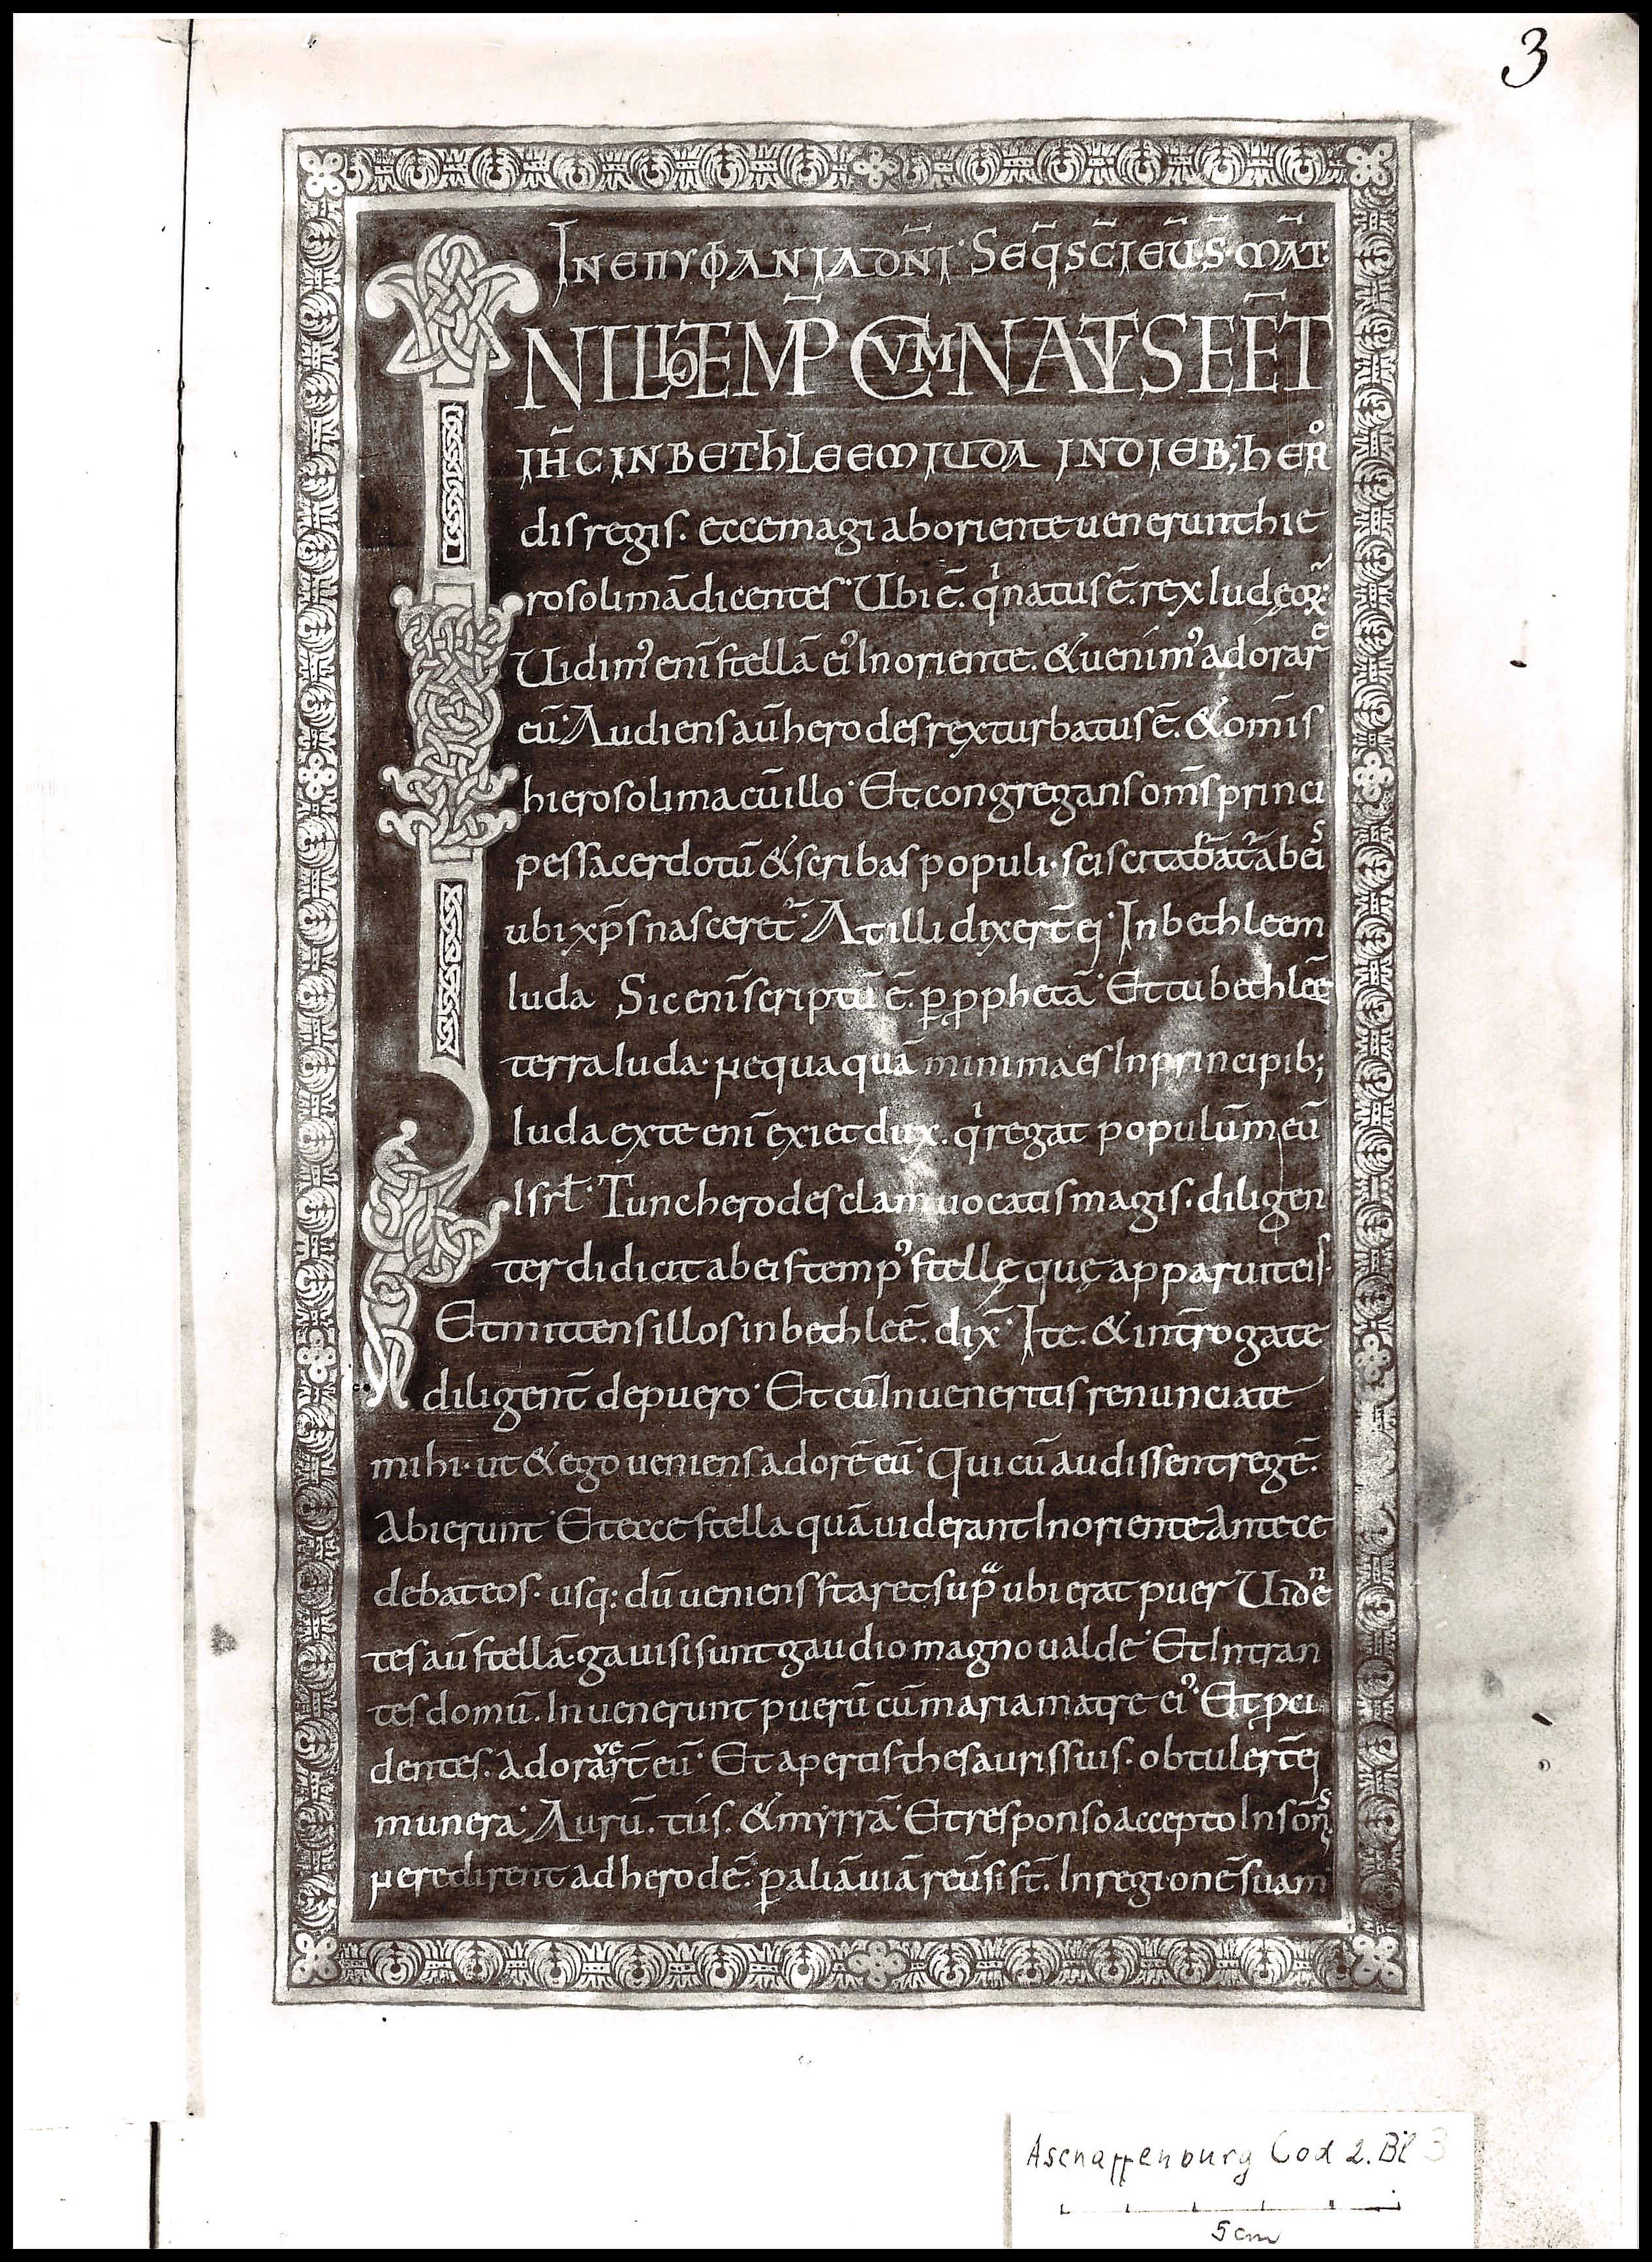 3
IN EΠYΦANIA DÑI· SEQ̄ SC̄I EŪ·S· MAT̄·
IN ILLO TEMP̄ CVM NATVS EĒT
IH̄C IN BETHLEEM IUDA IN DIEB; HERͦ
dis regis. ecce magi ab oriente uenerunt hie
rosolimā dicentes· Ubi ē. qͥ natus ē. rex Iudęoꝝ·
Uidimꝰ enī stellā eiꝰ In oriente. & uenimꝰ adorarͤ
eū· Audiens aū herodes rex turbatus ē. & om̄is
hierosolima cū illo· Et congregans om̄s princi
pes sacerdotū & scribas populi· sciscitabat᷑ ab eiˢ
ubi xp̄s nasceret᷑· At illi dixer̄t ei· In bethleem
Iuda Sic enī scriptū ē. ꝑ ꝓphetā· Et tu bethleē
terra Iuda· nequaquā minima es In principib;
Iuda ex te enī exiet dux. qͥ regat populū meū
Isrł· Tunc herodes clam uocatis magis· diligen
ter didicit ab eis tempꝰ stellę quę apparuit eis·
Et mittens illos in bethleē. dix̄· Ite. & int̄rogate
diligent̄ de puero· Et cū Inueneritis renunciate
mihi· ut & ego ueniens adorē eū· Qui cū audissent regē.
Abierunt· Et ecce stella quā uiderant In oriente Antece
debat eos· usq; dū ueniens staret supᵃ ubi erat puer Uideⁿ
tes aū stellā· gauisi sunt gaudio magno ualde· Et Intran
tes domū. Inuenerunt puerū cū maria matre eiꝰ· Et ꝓci
dentes. Adoraᵛᵉr̄t eū· Et apertis thesauris suis· obtuler̄t ei
munera· Aurū. tús. & myrrā· Et responso accepto In som̄ˢ
ne redirent ad herodē· ꝑ aliā uiā reūsi st̄. In regionē suam
Aschaffenburg Cod 2. Bl 3
5 cm